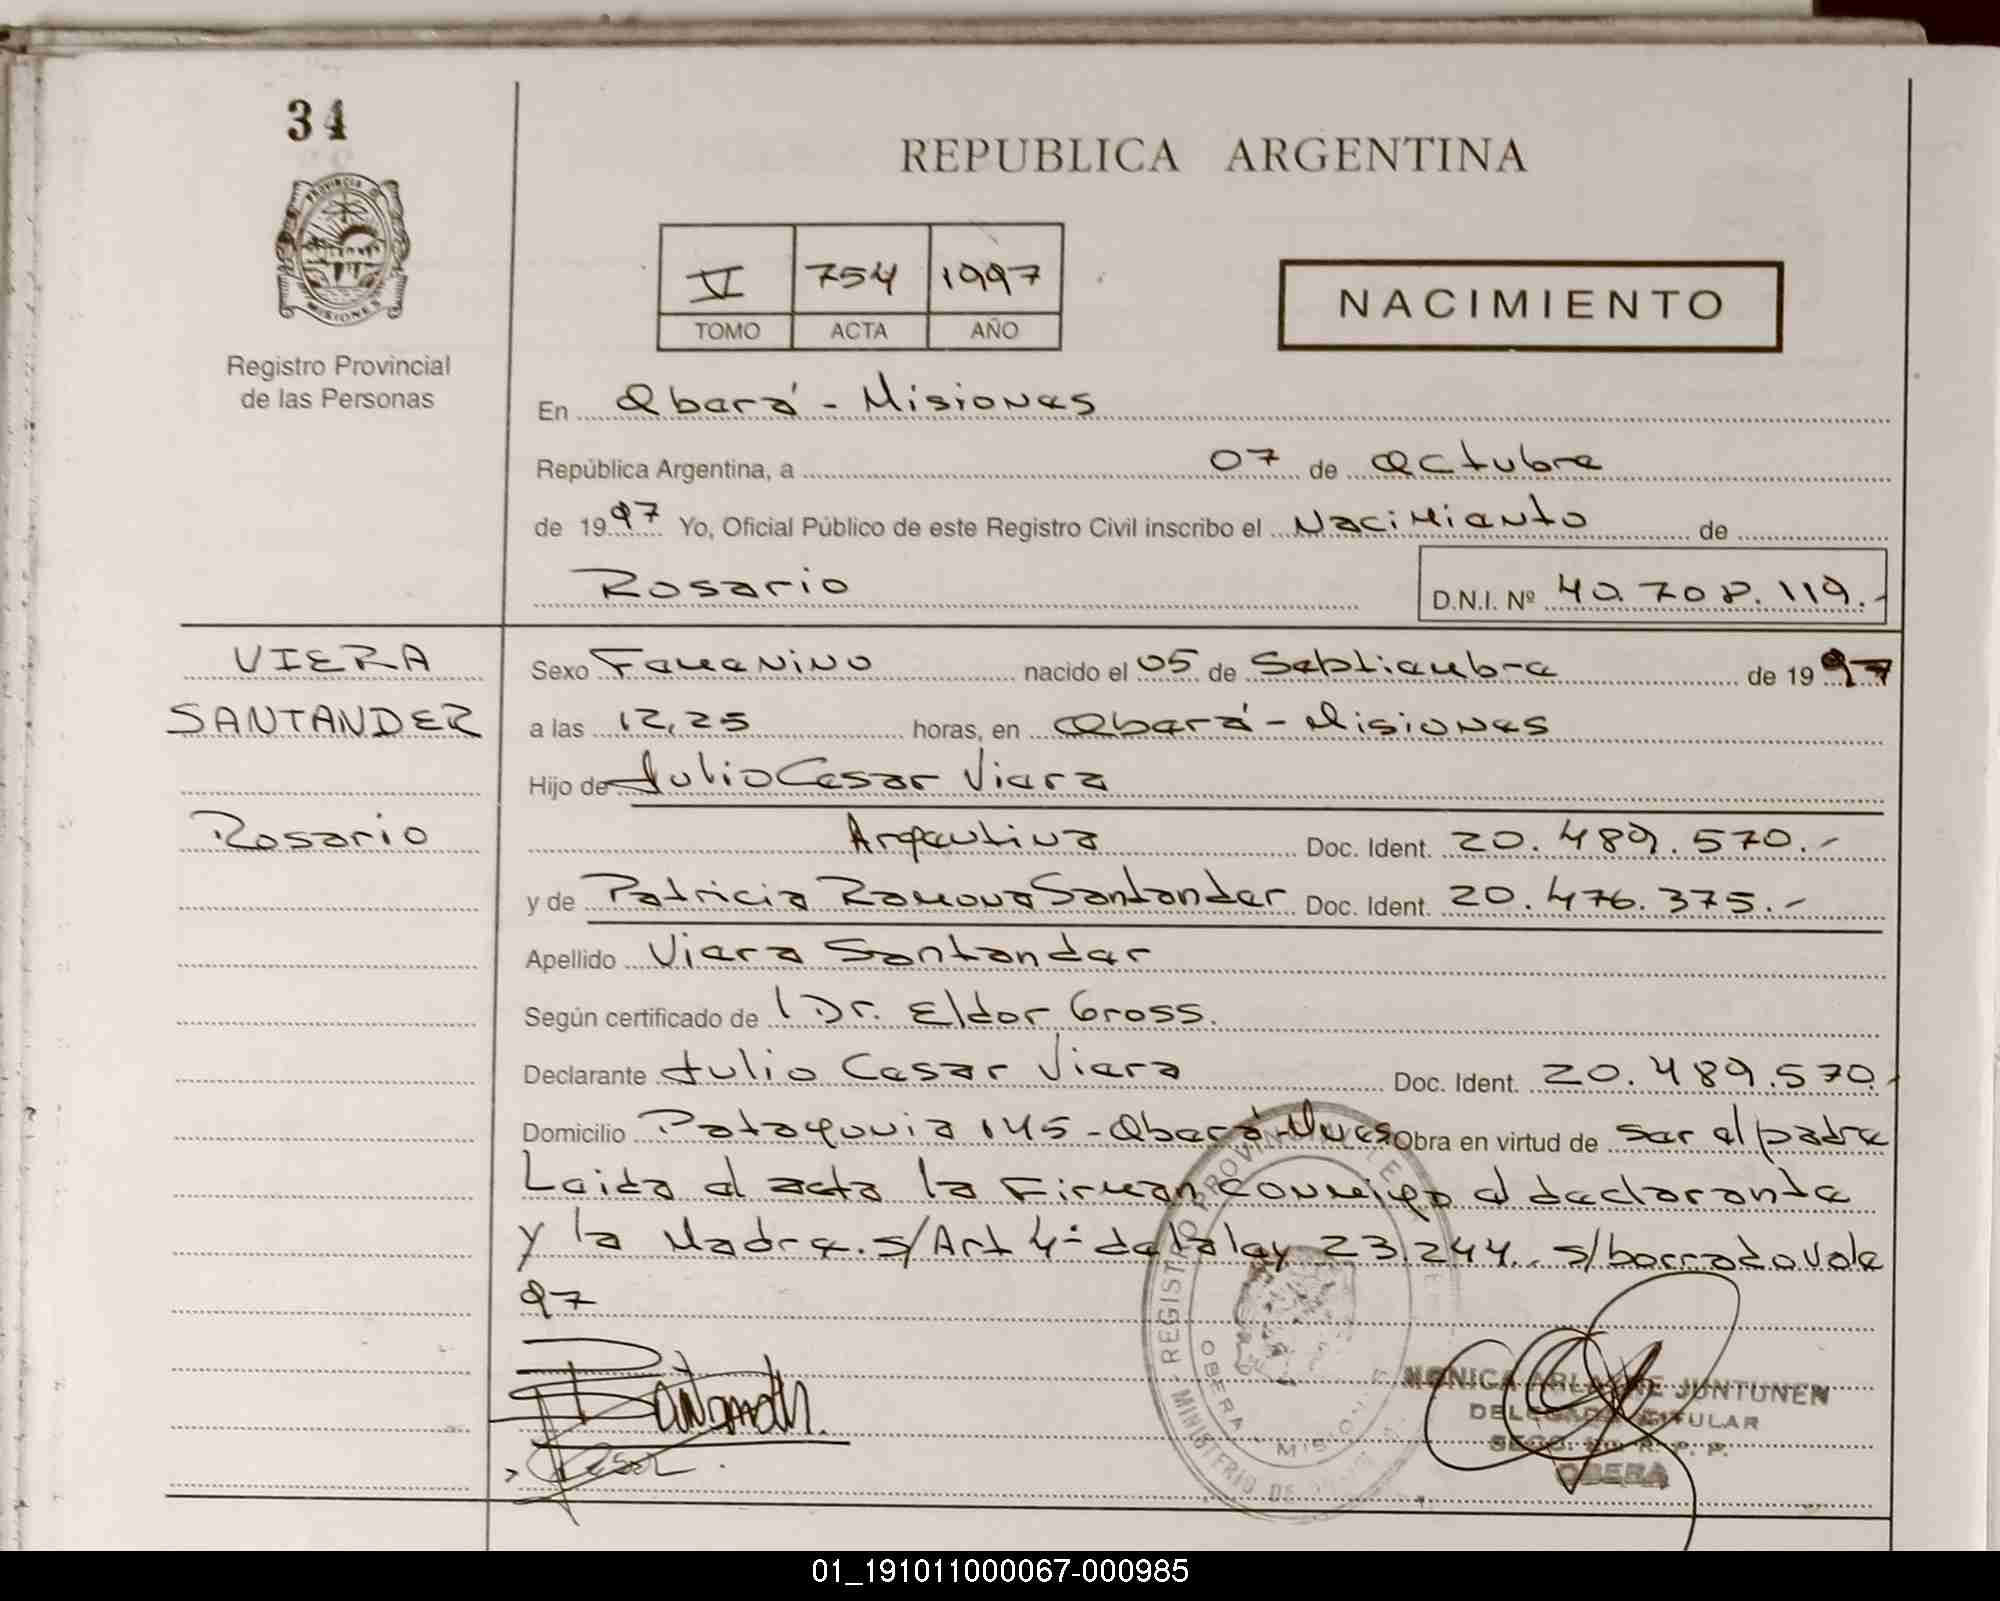 34
REPUBLICA ARGENTINA
PROVINCIA DE
MISIONES
Registro Provincial
de las Personas
V 754 1997
TOMO ACTA AÑO
NACIMIENTO
En Oberá - Misiones
República Argentina, a 07 de Octubre
de 1997 Yo, Oficial Público de este Registro Civil inscribo el Nacimiento de
Rosario D.N.I. Nº 40.708.119.-
VIERA
SANTANDER
Rosario
Sexo Femenino nacido el 05 de Septiembre de 1997
a las 12,25 horas, en Oberá - Misiones
Hijo de Julio Cesar Viera
Argentina Doc. Ident. 20.489.570.-
y de Patricia Ramona Santander Doc. Ident. 20.476.375.-
Apellido Viera Santander
Según certificado de l Dr. Eldor Gross.
Declarante Julio Cesar Viera Doc. Ident. 20.489.570.-
Domicilio Patagonia 145 - Oberá - Mnes Obra en virtud de ser el padre
Leida el acta la Firman conmigo el declarante
y la Madre. s/Art 4º de la ley 23.244. s/borrado vale
97
REGISTRO PROVINCIAL DE
OBERA MISIONES
MINISTERIO DE
MONICA ARLAINE JUNTUNEN
DELEGADA TITULAR
SECC. R. P. P.
OBERA
01_191011000067-000985